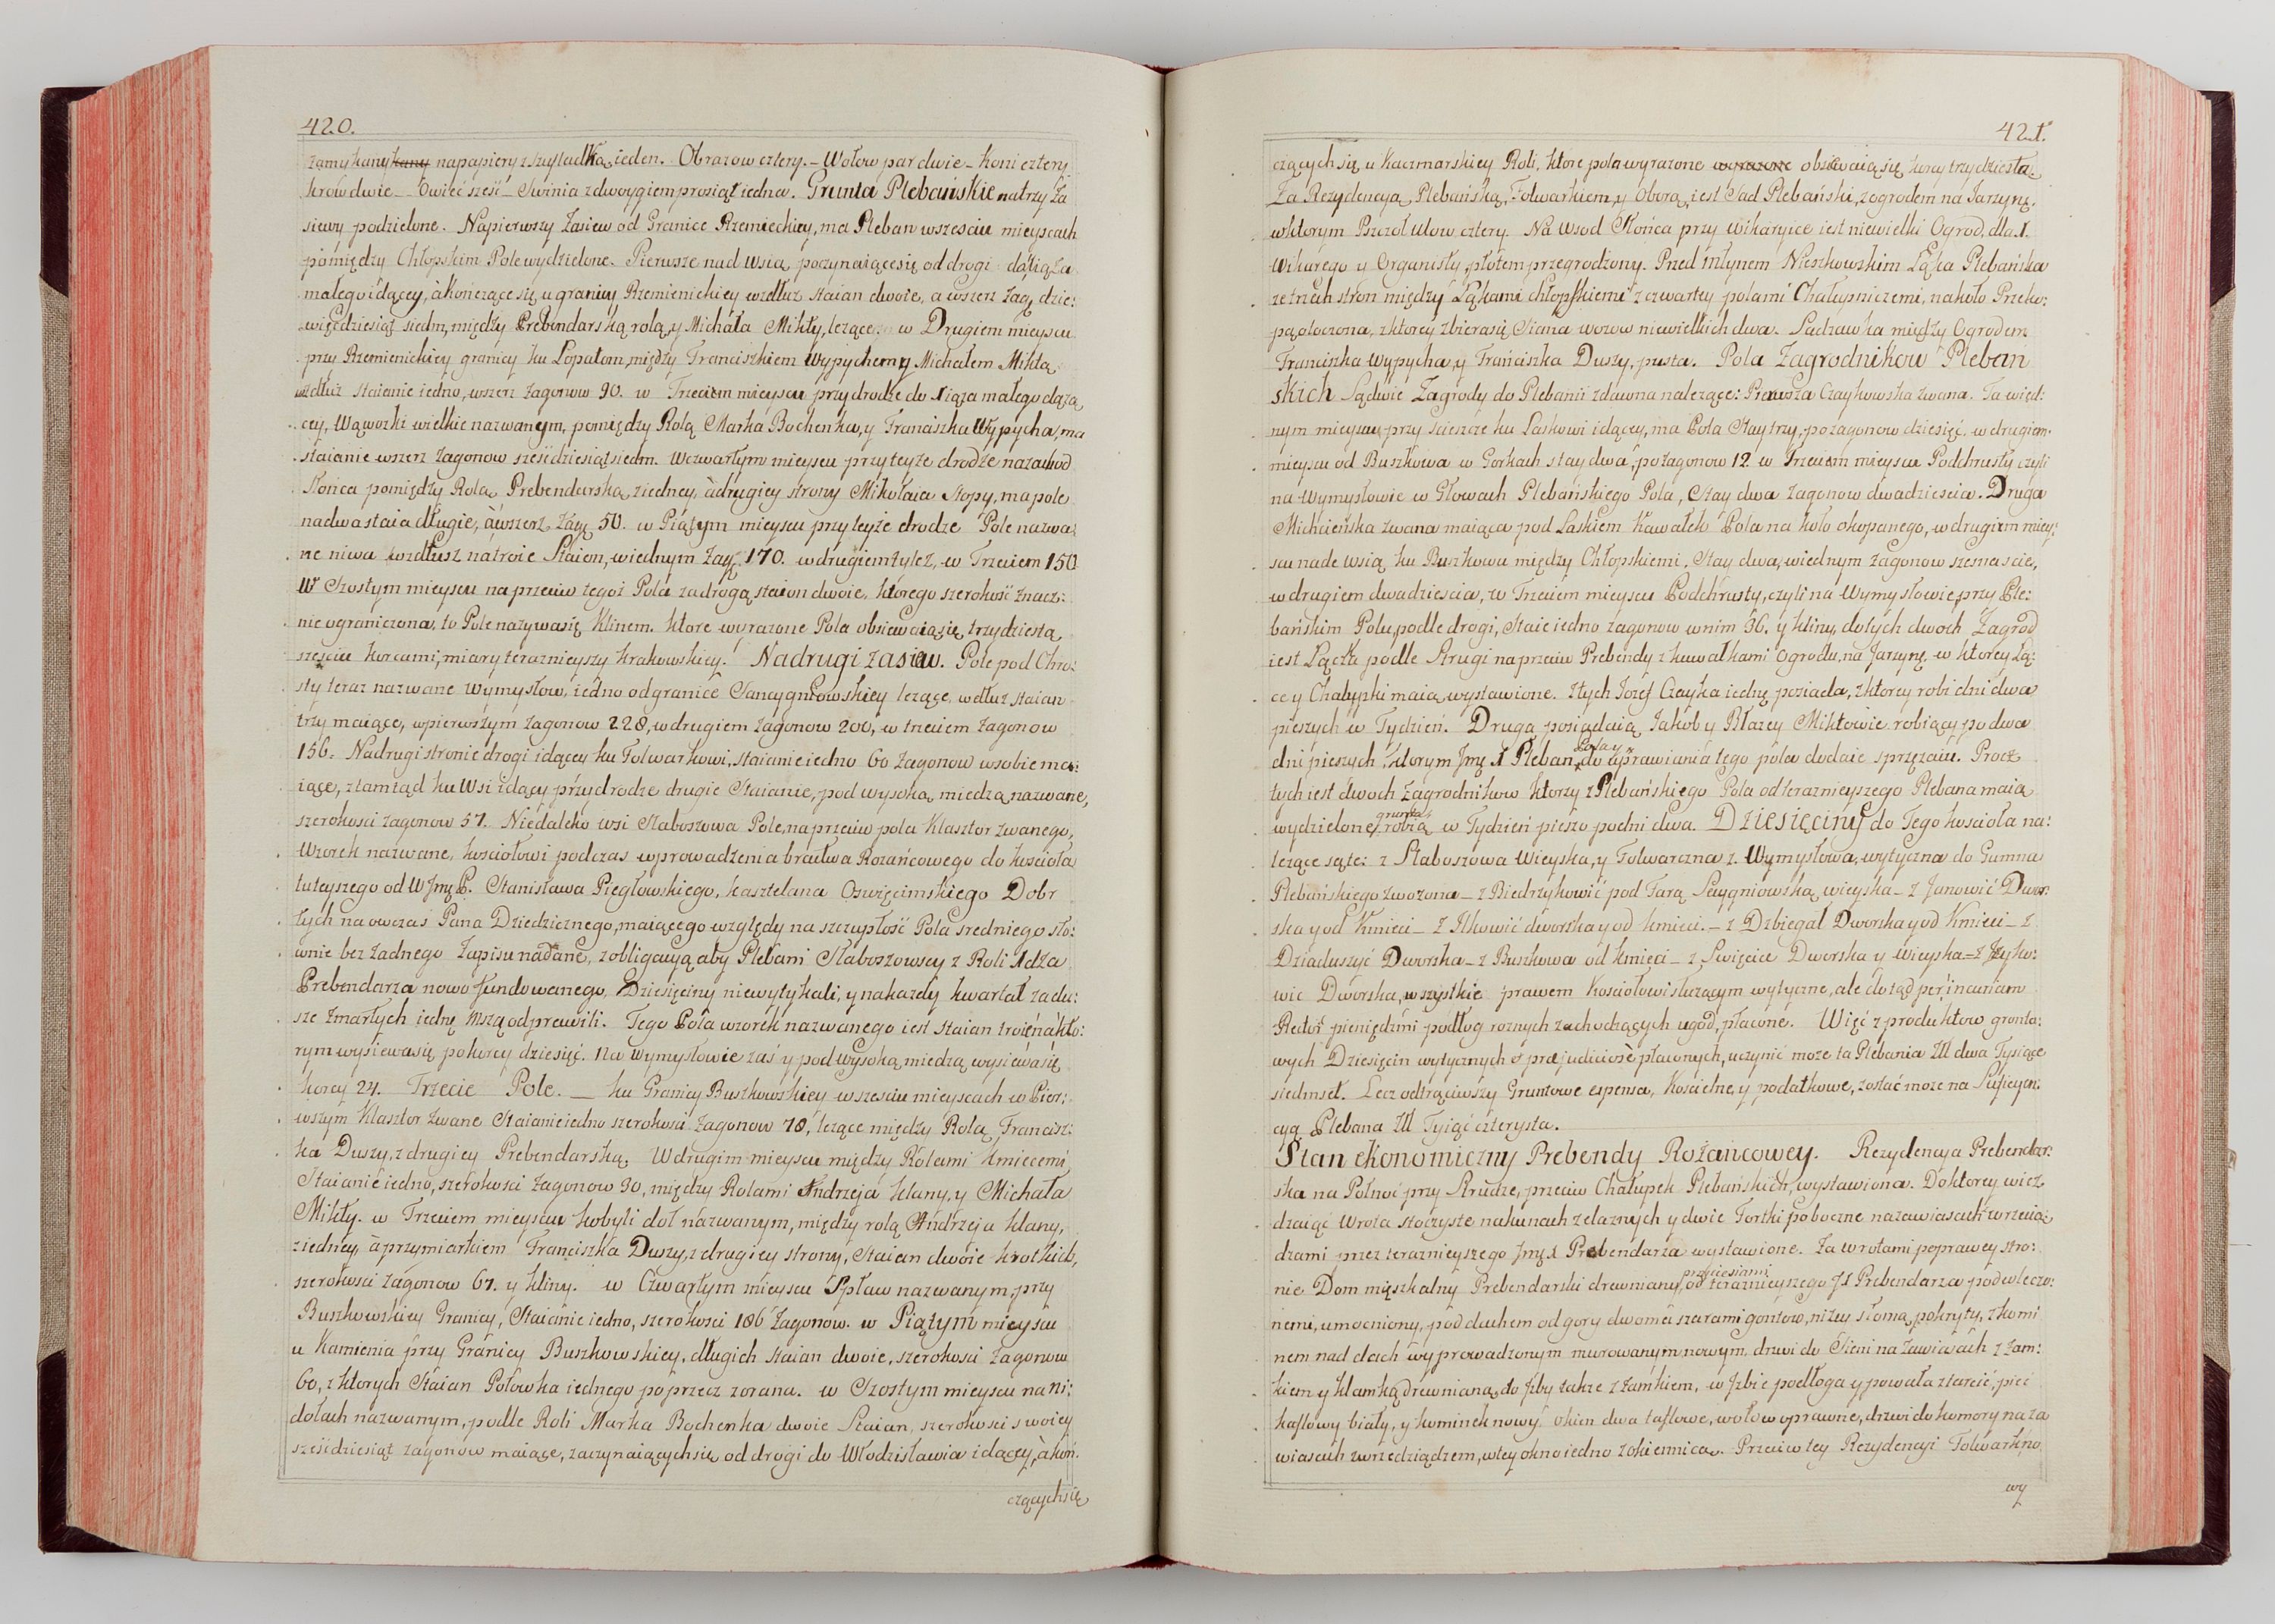 420.
zamykany kany na papiery z szufladką ieden. Obrazow cztery. – Wołow par dwie – Koni cztery
krow dwie – Owiec sześć – Swinia z dwoygiem prosiąt iedna. Grunta Plebańskie na trzy Za
siewy podzielone. Na pierwszy Zasiew od Granice Rzemieckiey, ma Pleban w szesciu mieyscach
pomiędzy Chłopskim Pole wydzielone. Pierwsze nad Wsią, poczynaiące się od drogi do Xiąża
małego idącey, à kończące się u granicy Rzemienickiey wzdłuż staian dwoie, a wszerz Zag dzie:
więdziesiąt siedm, między Prebendarską rolą, y Michała Mikły, lezące. w Drugiem mieyscu
przy Rzemienickiey granicy ku Łopatom, między Franciszkiem Wypychem y Michałem Mikłą
wzdłuż staianie iedno, wszerz Zagonow 90. w Trzeciem mieyscu przy drodze do Xiąża małego dążą
cey, Wąwozki wielkie nazwanym, pomiędzy Rolą Marka Bochenka, y Franciszka Wypycha, ma
staianie wszerz Zagonow sześćdziesiąt siedm. W czwartym mieyscu przy teyże drodze na zachod
Słońca pomiędzy Rolą Prebendarską z iedney, à drugiey strony Mikołaia Stopy, ma pole
na dwa staia długie, à wszerz Zag 50. w Piątym mieyscu przy teyże drodze Pole nazwa
ne niwa wzdłusz na troie Staion, w iednym Zag. 170. w drugiem tyleż, w Trzeciem 150
W Szostym mieyscu naprzeciw tegoż Pola za drogą staion dwoie, ktorego szerokość znacz:
nie ograniczona, to Pole nazywa się Klinem. ktore wyrażone Pola obsiewaią się trzydziestą
sześciu korcami, miary teraznieyszy krakowskiey. Na drugi zasiew. Pole pod Chro:
sty teraz nazwane Wymysłow, iedno od granice Sancygniowskiey lezące, wdłuż staian
trzy maiące, w pierwszym zagonow 228, w drugiem zagonow 200, w trzeciem zagonow
156. Na drugi stronie drogi idącey ku Folwarkowi, staianie iedno 60 Zagonow w sobie ma:
iące, z tamtąd ku Wsi idący przy drodze drugie Staianie, pod wysoką miedzą nazwane,
szerokosci zagonow 57. Niedaleko wsi Słaboszowa Pole, naprzeciw pola Klasztor zwanego,
Wzorek nazwane, kosciołowi podczas wprowadzenia bractwa Rozańcowego do kościoła
tuteyszego od WJmę P. Stanisława Piegłowskiego, kasztelana Oswięcimskiego Dobr
tych na owczas Pana Dziedzicznego, maiącego względy na szczupłość Pola sredniego sło:
wnie bez żadnego Zapisu nadane, z obligacyą aby Plebani Słaboszowscy z Roli Xdza
Prebendarza nowo fundowanego, Dziesięciny niewytykali, y na kazdy kwartał za du:
sze Zmarłych iednę Mszą odprawili. Tego Pola wzorek nazwanego iest staian troie na kto:
rym wysiewa się po korcy dziesięć. Na Wymysłowie zaś y pod wysoką miedzą, wysiewa się
korcy 24. Trzecie Pole. – ku Granicy Buszkowskiey w szesciu mieyscach w Pier:
wszym Klasztor zwane Staianie iedno szerokosci Zagonow 78, lezące między Rolą Francisz:
ka Duszy, z drugiey Prebendarską. W drugim mieyscu między Rolami Kmiecemi,
Staianie iedno, szerokosci Zagonow 90, między Rolami Andrzeja Klany, y Michała
Mikły. w Trzeciem mieyscu kobyli doł nazwanym, między rolą Andrzeja klany,
z iedney, à przymiarkiem Franciszka Duszy, z drugiey strony, Staian dwoie krotkich,
szerokosci zagonow 67. y kliny. w Czwartym mieyscu Spław nazwanym, przy
Buszkowskiey Granicy, Staianie iedno, szerokosci 186 Zagonow. w Piątym mieyscu
u Kamienia przy Granicy Buszkowskiey, długich staian dwoie, szerokosci Zagonow
60, z ktorych Staian Połowka iednego poprzecz zorana. w Szostym mieyscu na ni:
dołach nazwanym, podle Roli Marka Bochenka dwoie Staian, szerokosci swoiey
sześćdziesiąt zagonow maiące, zaczynaiących się od drogi do Włodzisławia idącey, à koń.
czących się
421.
czących się u Kaczmarskiey Roli, ktore pola wyrazone wyrazone obsiewaią się korcy trzydziesta.
Za Rezydencyą Plebańską, Folwarkiem, y Oborą, iest Sad Plebański, z ogrodem na Jarzynę.
w ktorym Pszczoł Ulow cztery. Na Wsod Słońca przy Wikaryice iest niewielki Ogrod, dla X.
Wikarego y Organisty płotem przegrodzony. Przed Młynem Nieszkowskim Łąka Plebańska
ze trzech stron między Łąkami chłopskiemi z czwartey polami Chałupniczemi, nakoło Przeko:
pą otoczona, z ktorey zbiera się Siana wozow niewielkich dwa. Sadzawka między Ogrodem
Franciszka Wypycha, y Franciszka Duszy, pusta. Pola Zagrodnikow Pleban
skich Są dwie Zagrody do Plebanii zdawna nalezące: Pierwsza Czaykowska zwana. Ta w ied:
nym mieyscu przy scieszce ku Laskowi idącey, ma Pola Stay trzy, po zagonow dziesięć, w drugiem
mieyscu od Buszkowa w Gorkach stay dwa, po zagonow 12. w Trzeciem mieyscu Podchrusty czyli
na Wymysłowie w Głowach Plebańskiego Pola, Stay dwa zagonow dwadziescia. Druga
Michcieńska zwana maiąca pod Laskiem kawałek Pola na koło okopanego, w drugiem miey:
scu nade wsią ku Buszkowu między Chłopskiemi, Stay dwa, w iednym zagonow szesnascie,
w drugiem dwadziescia, w Trzeciem mieyscu Podchrusty, czyli na Wymysłowie, przy Ple:
bańskim Polu, podle drogi, Staie iedno zagonow w nim 36. y kliny, do tych dwoch Zagrod
iest Łączka podle Strugi naprzeciw Prebendy z kawałkami ogrodu, na Jarzynę, w ktorey Łą:
ce y Chałupki maią wystawione. Z tych Jozef Czayka iednę posiada, z ktorey robi dni dwa
pieszych w Tydzień. Drugą posiądaią Jakob y Błazey Mikłowie robiący po dwa
dni pieszych, ktorym Jmę X Pleban do uprawiania tego pola dodaie sprzężaiu. Procz
tych iest dwoch Zagrodnikow ktorzy z Plebańskiego Pola od teraznieyszego Plebana maią
grunta
wydzielone, robią w Tydzień pieszo po dni dwa. Dziesięciny do Tego kosciola na:
lezące są te: z Słaboszowa Wieyska, y Folwarczna z Wymysłowa, wytyczna do Gumna
Plebańskiego zwozona – z Biedrzykowić pod Farą Sancygniowską, wieyska – z Janowić Dwor:
ska y od Kmieci – z Ilkowić dworska y od kmieci. – z Dzbiegal Dworska y od Kmieci – z
Dziaduszyć Dworska – z Buszkowa od kmieci – z Swięcic Dworska y Wieyska – z Jzyko:
wic Dworska, wszystkie prawem Kosciołowi służącym wytyczne, ale dotąd per incuriam
Rector pieniędzmi podług roznych zachodzących ugod, płacone. Więć z produktow gronto:
wych Dziesięcin wytycznych et præjudiciose płaconych, uczynić moze ta Plebania Zlł dwa Tysiące
siedmset. Lecz odtrąciwszy Gruntowe expensa, Koscielne, y podatkowe, zostać moze na Suficyen:
cyą Plebana Zlł Tysiąć czterysta.
Stan ekonomiczny Prebendy Rożancowey. Rezydencya Prebendar:
ska na Połnoć przy Strudze, przeciw Chałupek Plebańskich, wystawiona. Do ktorey wież
dżaiąć Wrota stoczyste na kunach żelaznych y dwie Fortki poboczne na zawiasach w rzecią:
dzami przez teraznieyszego Jmę X Prebendarza wystawione. Za wrotami po prawey stro:
przyciesiami
nie Dom mięszkalny Prebendarski drewniany, od teraznieyszego JX Prebendarza podwleczo:
nemi, umocniony, pod dachem od gory dwoma szarami gontow, niżey słomą pokryty, z komi
nem nad dach wyprowadzonym murowanym nowym, drzwi do Sieni na zawiasach z zam:
kiem y klamką drewnianą, do Jzby także z zamkiem, w Jzbie podłoga y powała z tarcic, piec
kaflowy biały, y kominek nowy, okien dwa taflowe, w ołow oprawne, drzwi do komory na za
wiasach z wrzecziądzem, w tey okno iedno z okiennicą. Przeciw tey Rezydencyi Folwarkno
wy